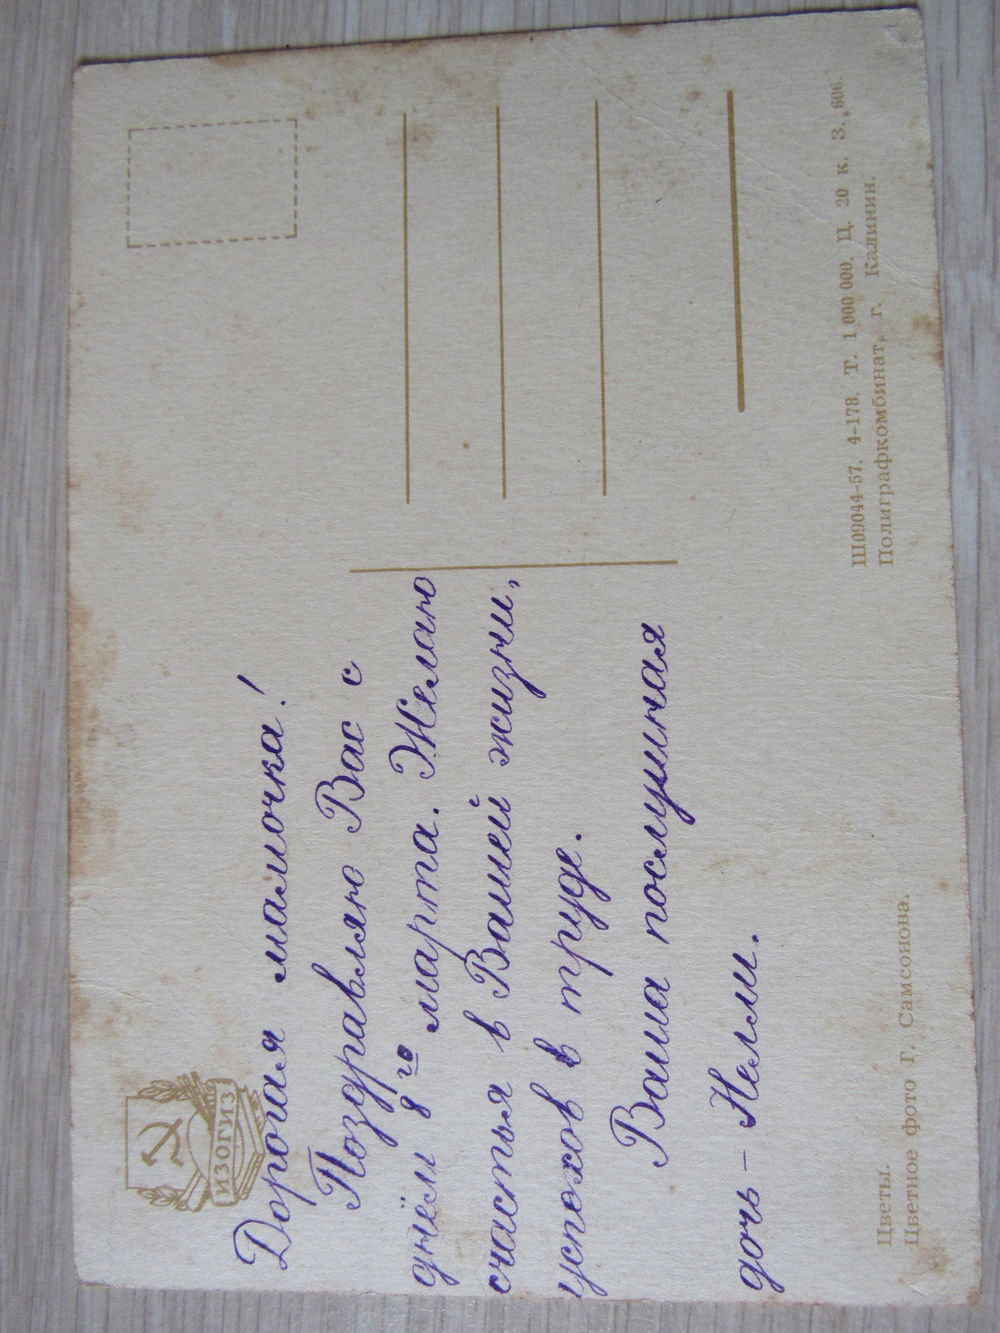 ИЗОГИЗ
Дорогая мамочка!
Поздравляю Вас с
днём 8го марта. Желаю
счастья в Вашей жизни,
успехов в труде.
Ваша послушная
дочь – Нелли.
Цветы.
Цветное фото Г. Самсонова.
Ш09044-57. 4-178. Т. 1 000 000. Ц. 20 к. З. 606.
Полиграфкомбинат, г. Калинин.